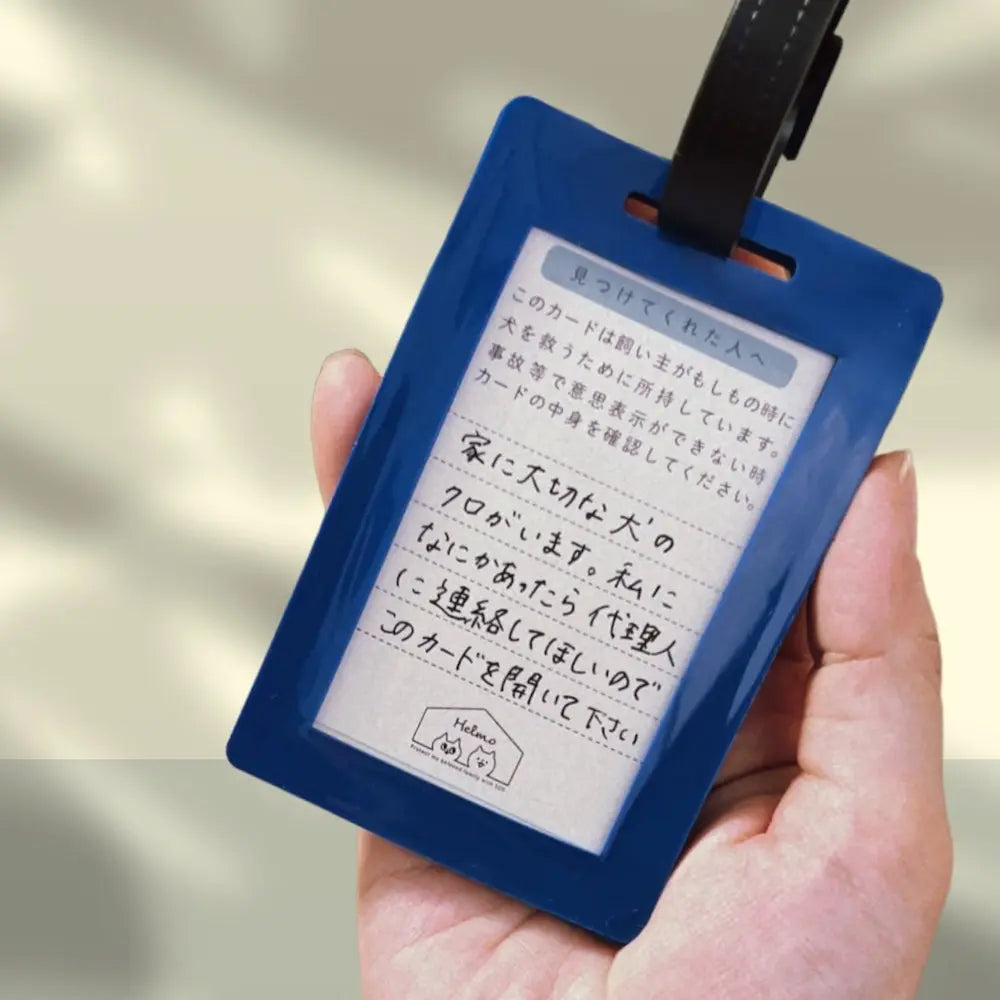 見つけてくれた人へ
このカードは飼い主がもしもの時に
犬を救うために所持しています。
事故等で意思表示ができない時
カードの中身を確認してください。
家に大切な犬の
クロがいます。私に
なにかあったら代理人
に連絡してほしいので
このカードを開いて下さい
Helmo
Protect my beloved family with SOS